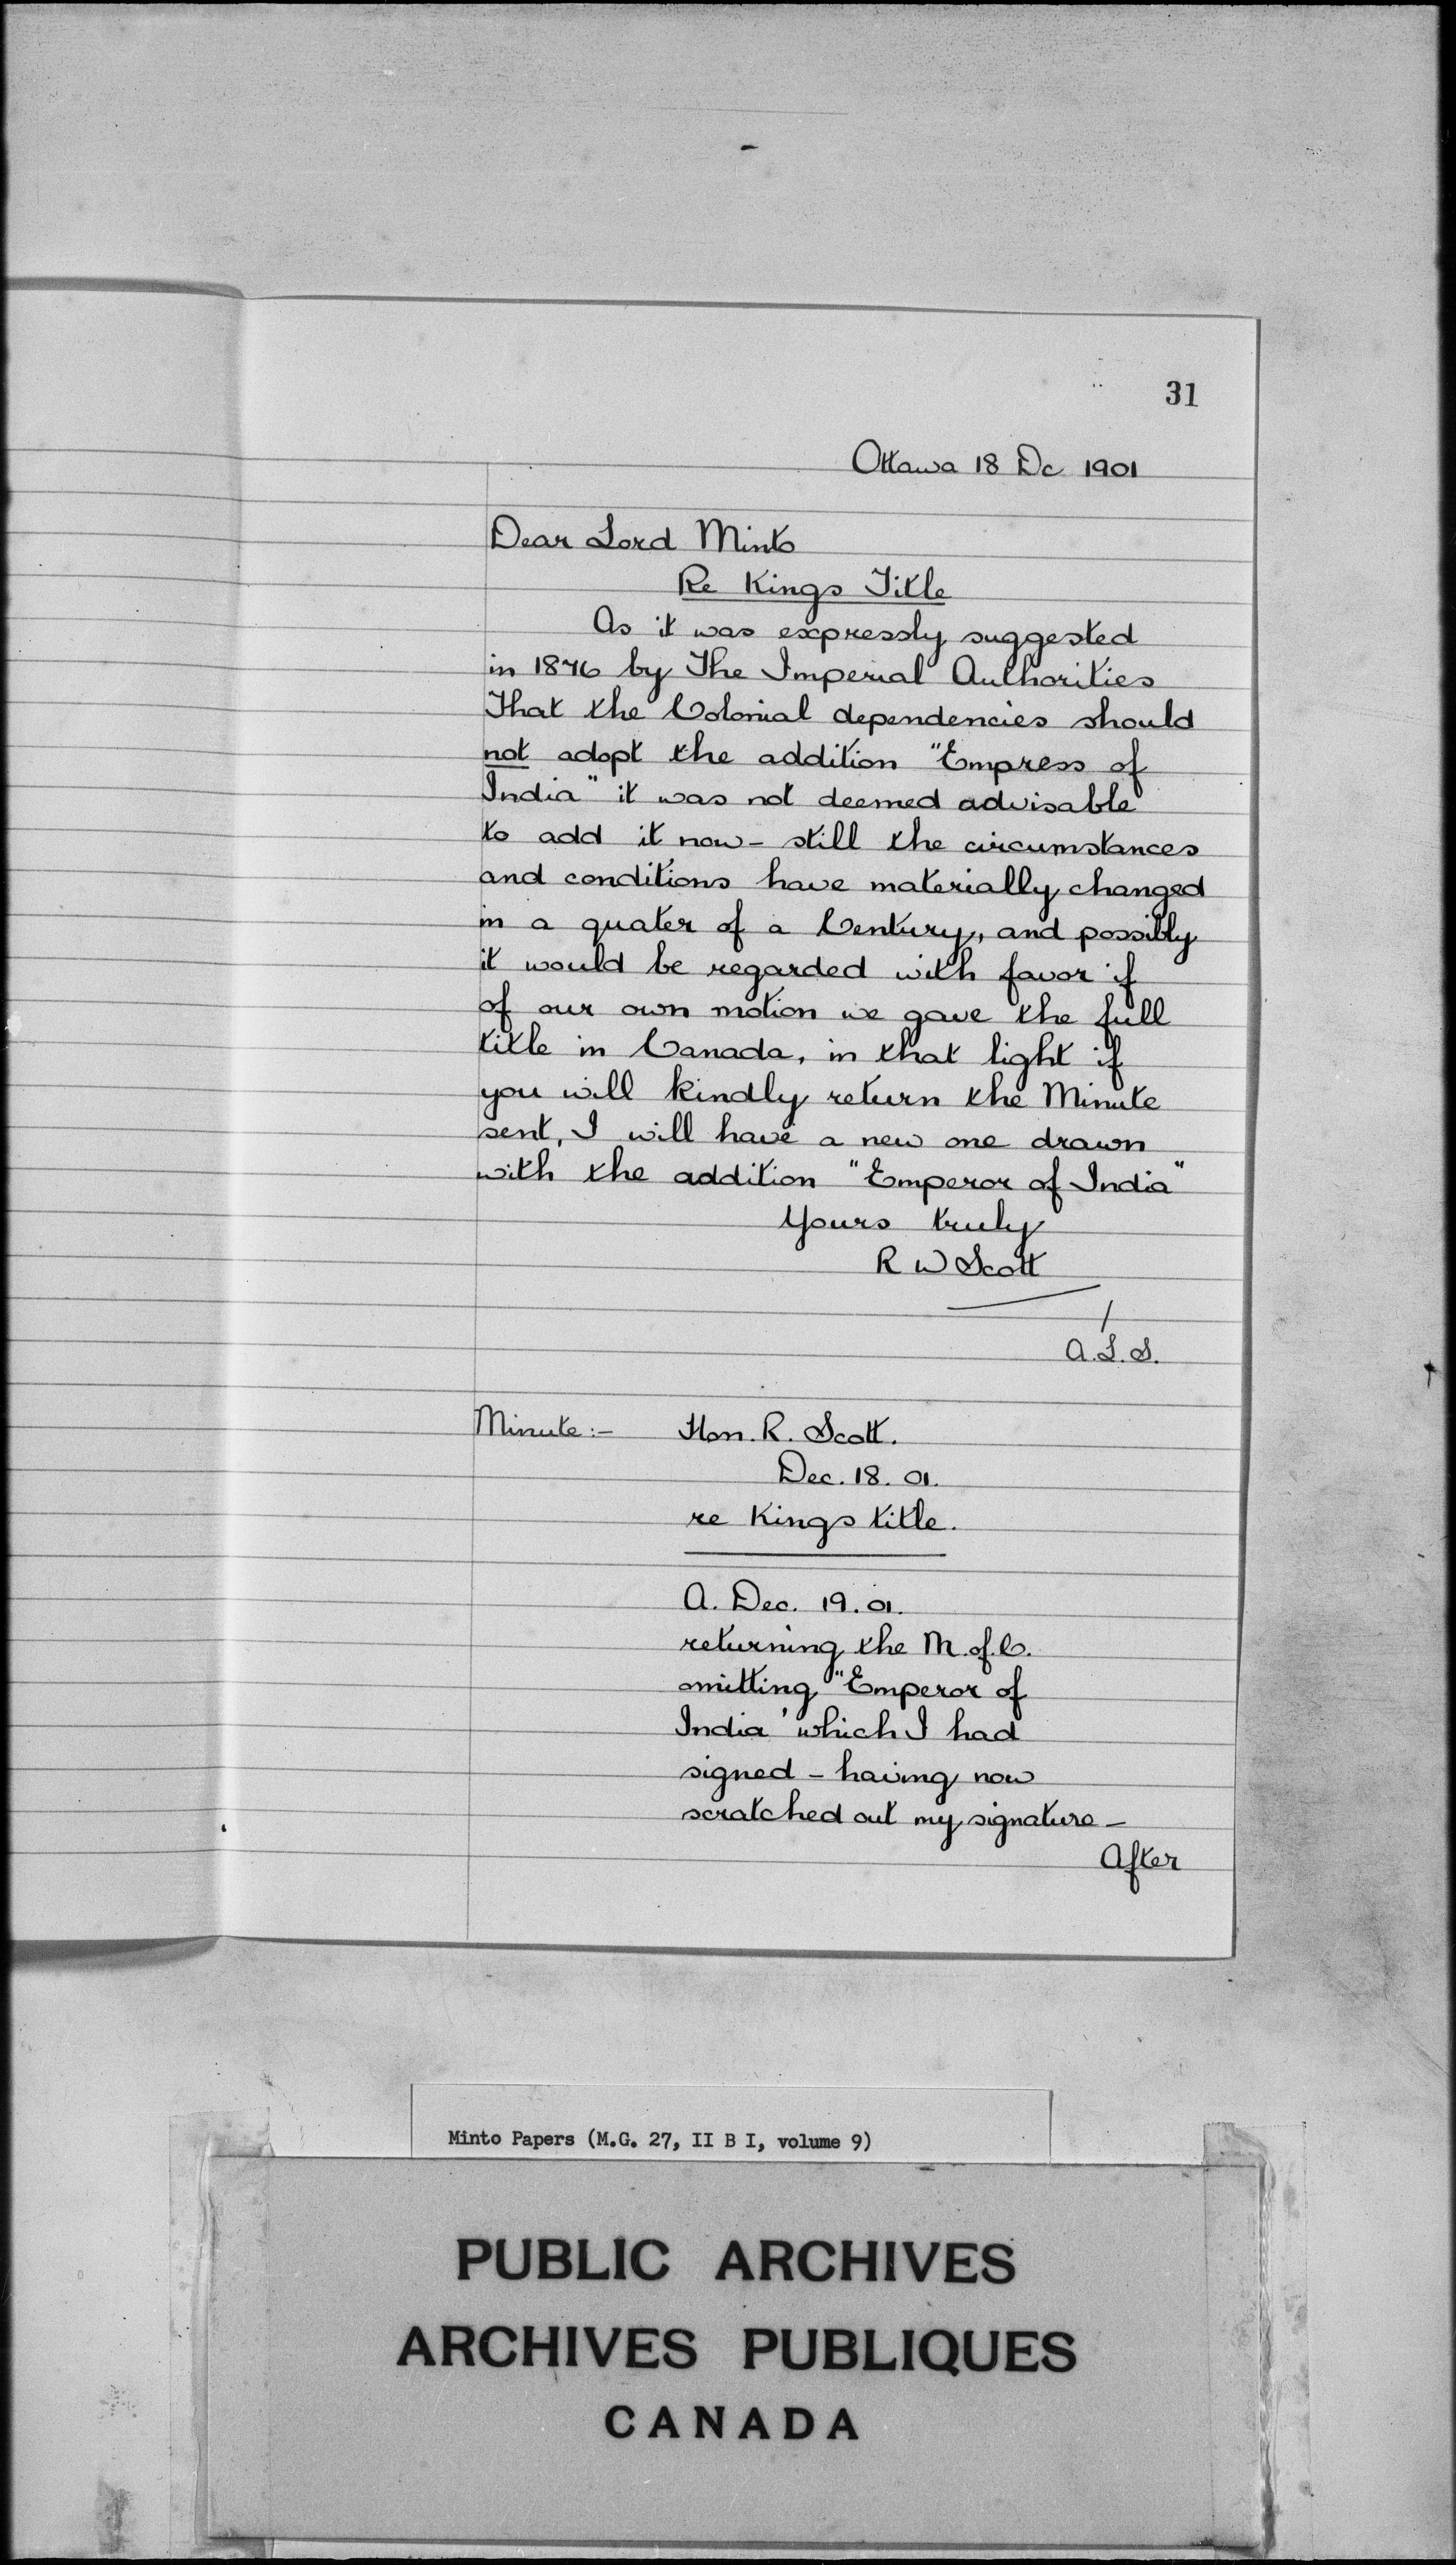 31
Ottawa 18 Dc 1901
Dear Lord Minto
Re Kings Title
As it was expressly suggested
in 1876 by The Imperial Authorities
That the Colonial dependencies should
not adopt the addition "Empress of
India" it was not deemed advisable
to add it now - still the circumstances
and conditions have materially changed
in a quater of a Century, and possibly
it would be regarded with favor if
of our own motion we gave the full
title in Canada, in that light if
you will kindly return the Minute
sent, I will have a new one drawn
with the addition "Emperor of India"
Yours truly
R W Scott
A.L.S.
Minute:- Hon. R. Scott.
Dec. 18. 01.
re Kings title.
A. Dec. 19. 01.
returning the M. of. C.
omitting "Emperor of
India' which I had
signed - having now
scratched out my signature -
After
Minto Papers (M.G. 27, II B I, volume 9)
PUBLIC ARCHIVES
ARCHIVES PUBLIQUES
CANADA